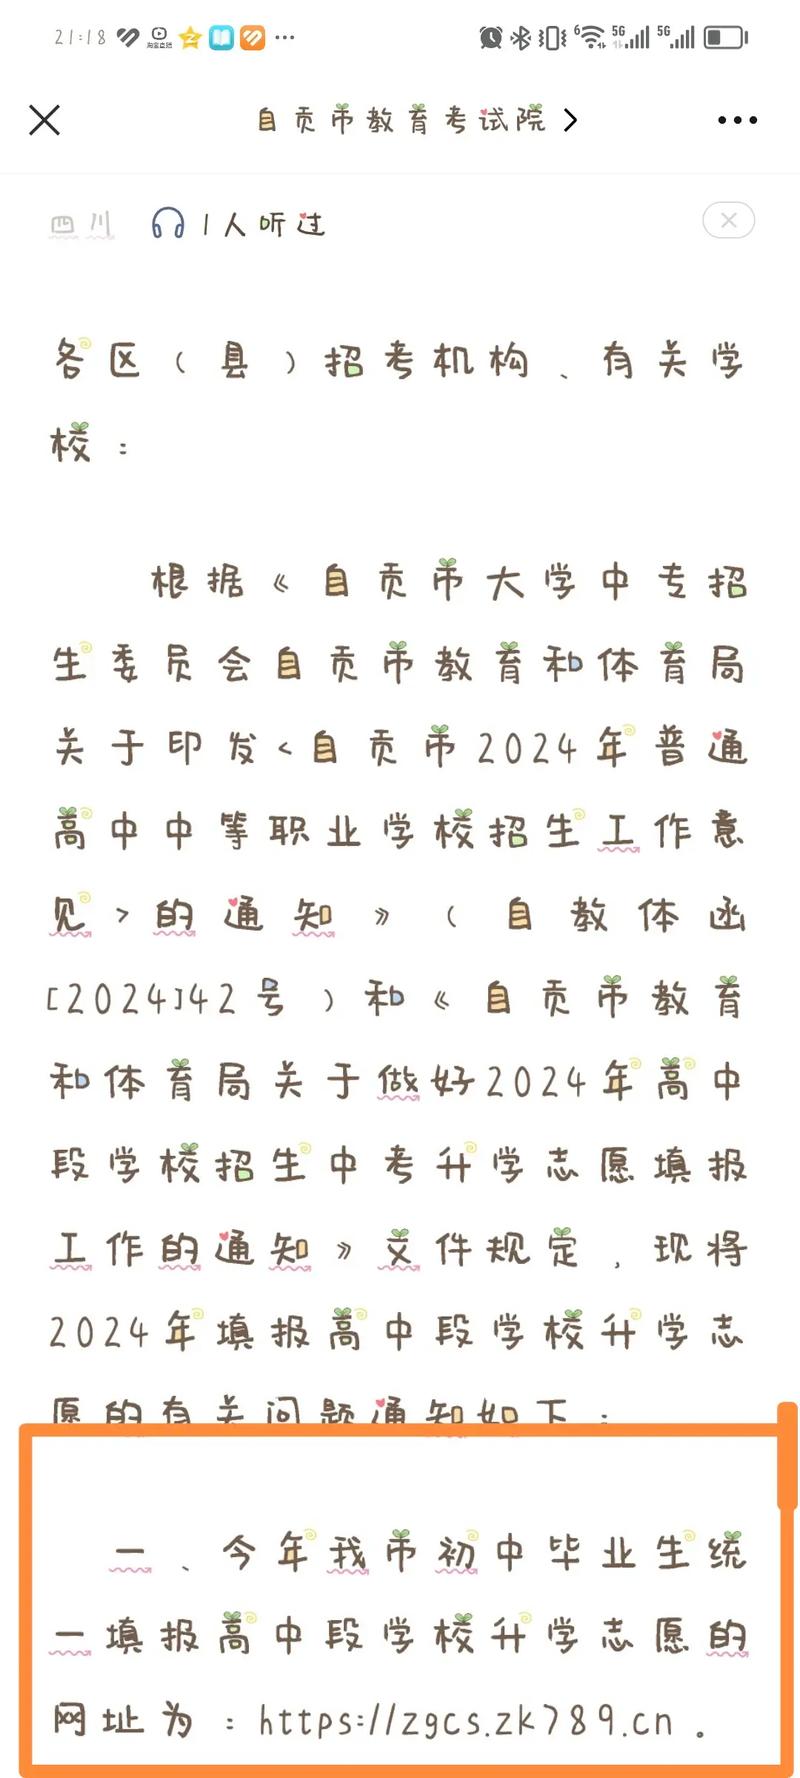 21:18
淘宝直播
6
5G
5G
自贡市教育考试院
四川 1人听过
各区（县）招考机构、有关学
校：
根据《自贡市大学中专招
生委员会自贡市教育和体育局
关于印发<自贡市2024年普通
高中中等职业学校招生工作意
见>的通知》（自教体函
[2024]42号）和《自贡市教育
和体育局关于做好2024年高中
段学校招生中考升学志愿填报
工作的通知》文件规定，现将
2024年填报高中段学校升学志
愿的有关问题通知如下：
一、今年我市初中毕业生统
一填报高中段学校升学志愿的
网址为：https://zgcs.zk789.cn。